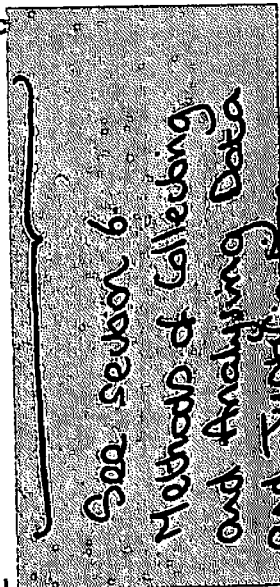 See section 6
Methods of Collecting
and Analysing Data
and